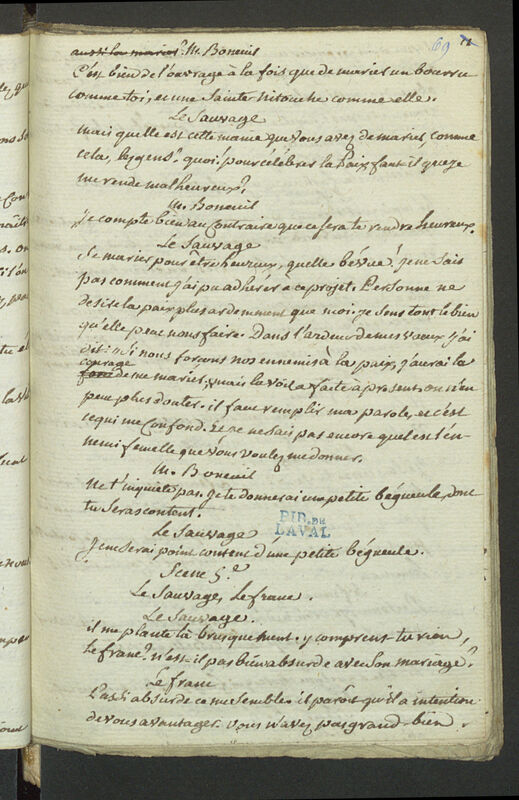 69
aussi la marier. M. Boneuil
C'est bien de l'ouvrage à la fois que de marier un bourru
comme toi, et une Sainte nitouche comme elle.
Le Sauvage
mais quelle est cette manie que vous avez de marier comme
cela, les gens? quoi! pour célébrer la Paix faut il que je
me rende malheureux?
M. Boneuil
je compte bien au Contraire que ce sera te rendre heureux.
Le Sauvage
Se marier pour être heureux, quelle bévue! je ne Sais
pas comment j'ai pu adhérer a ce projet. Personne ne
desire la paix plus ardemment que moi, je Sens tout le bien
qu'elle peut nous faire. Dans l'ardeur de mes vœux, j'ai
dit: Si nous forçons nos ennemis à la paix, j'aurai la
courage
force de me marier; mais la voila faite à present, on n'en
peut plus douter. il faut remplir ma parole, et c'est
ce qui me confond. Je ne sais pas encore quel est l'en-
nemi femelle que Vous voulez me donner.
M. Boneuil
ne t'inquiete pas. je te donnerai une petite bégueule, dont
tu Seras content.
BIB. DE
LAVAL
Le Sauvage
Je ne Serai point content d'une petite bégueule.
Scene 5.e
Le Sauvage, Le franc.
Le Sauvage.
il me plante là brusquement. y comprens tu rien,
Le franc? n'est il pas bien absurde avec Son mariage?
Le franc
Pas si absurde ce me Semble. il paroît qu'il a intention
de vous avantager. vous n'avez pas grand bien.